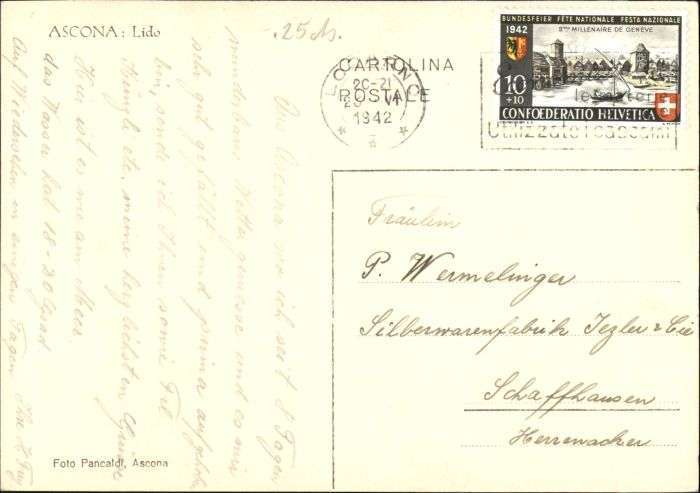 ASCONA: Lido
.25 M.
CARTOLINA
POSTALE
LOCARNO
20-21
VI
1942
BUNDESFEIER FÊTE NATIONALE FESTA NAZIONALE
1942
2me MILLENAIRE DE GENÈVE
10
+10
CONFOEDERATIO HELVETICA
Utilizzate i cascami
Fräulein
P. Wermelinger
Silberwarenfabrik Jezler & Cie
Schaffhausen
Herrenacker
In Ascona wo ich seit 8 Tagen
Wetter geniesse und es mir
sehr gut gefällt und prima aufgehoben
bin, sende ich Ihnen sowie Frl.
meine herzlichsten Grüsse
Hier ist es wie am Meer
das Wasser hat 18-20 Grad
Auf Wiedersehen in einigen Tagen
Foto Pancaldi, Ascona